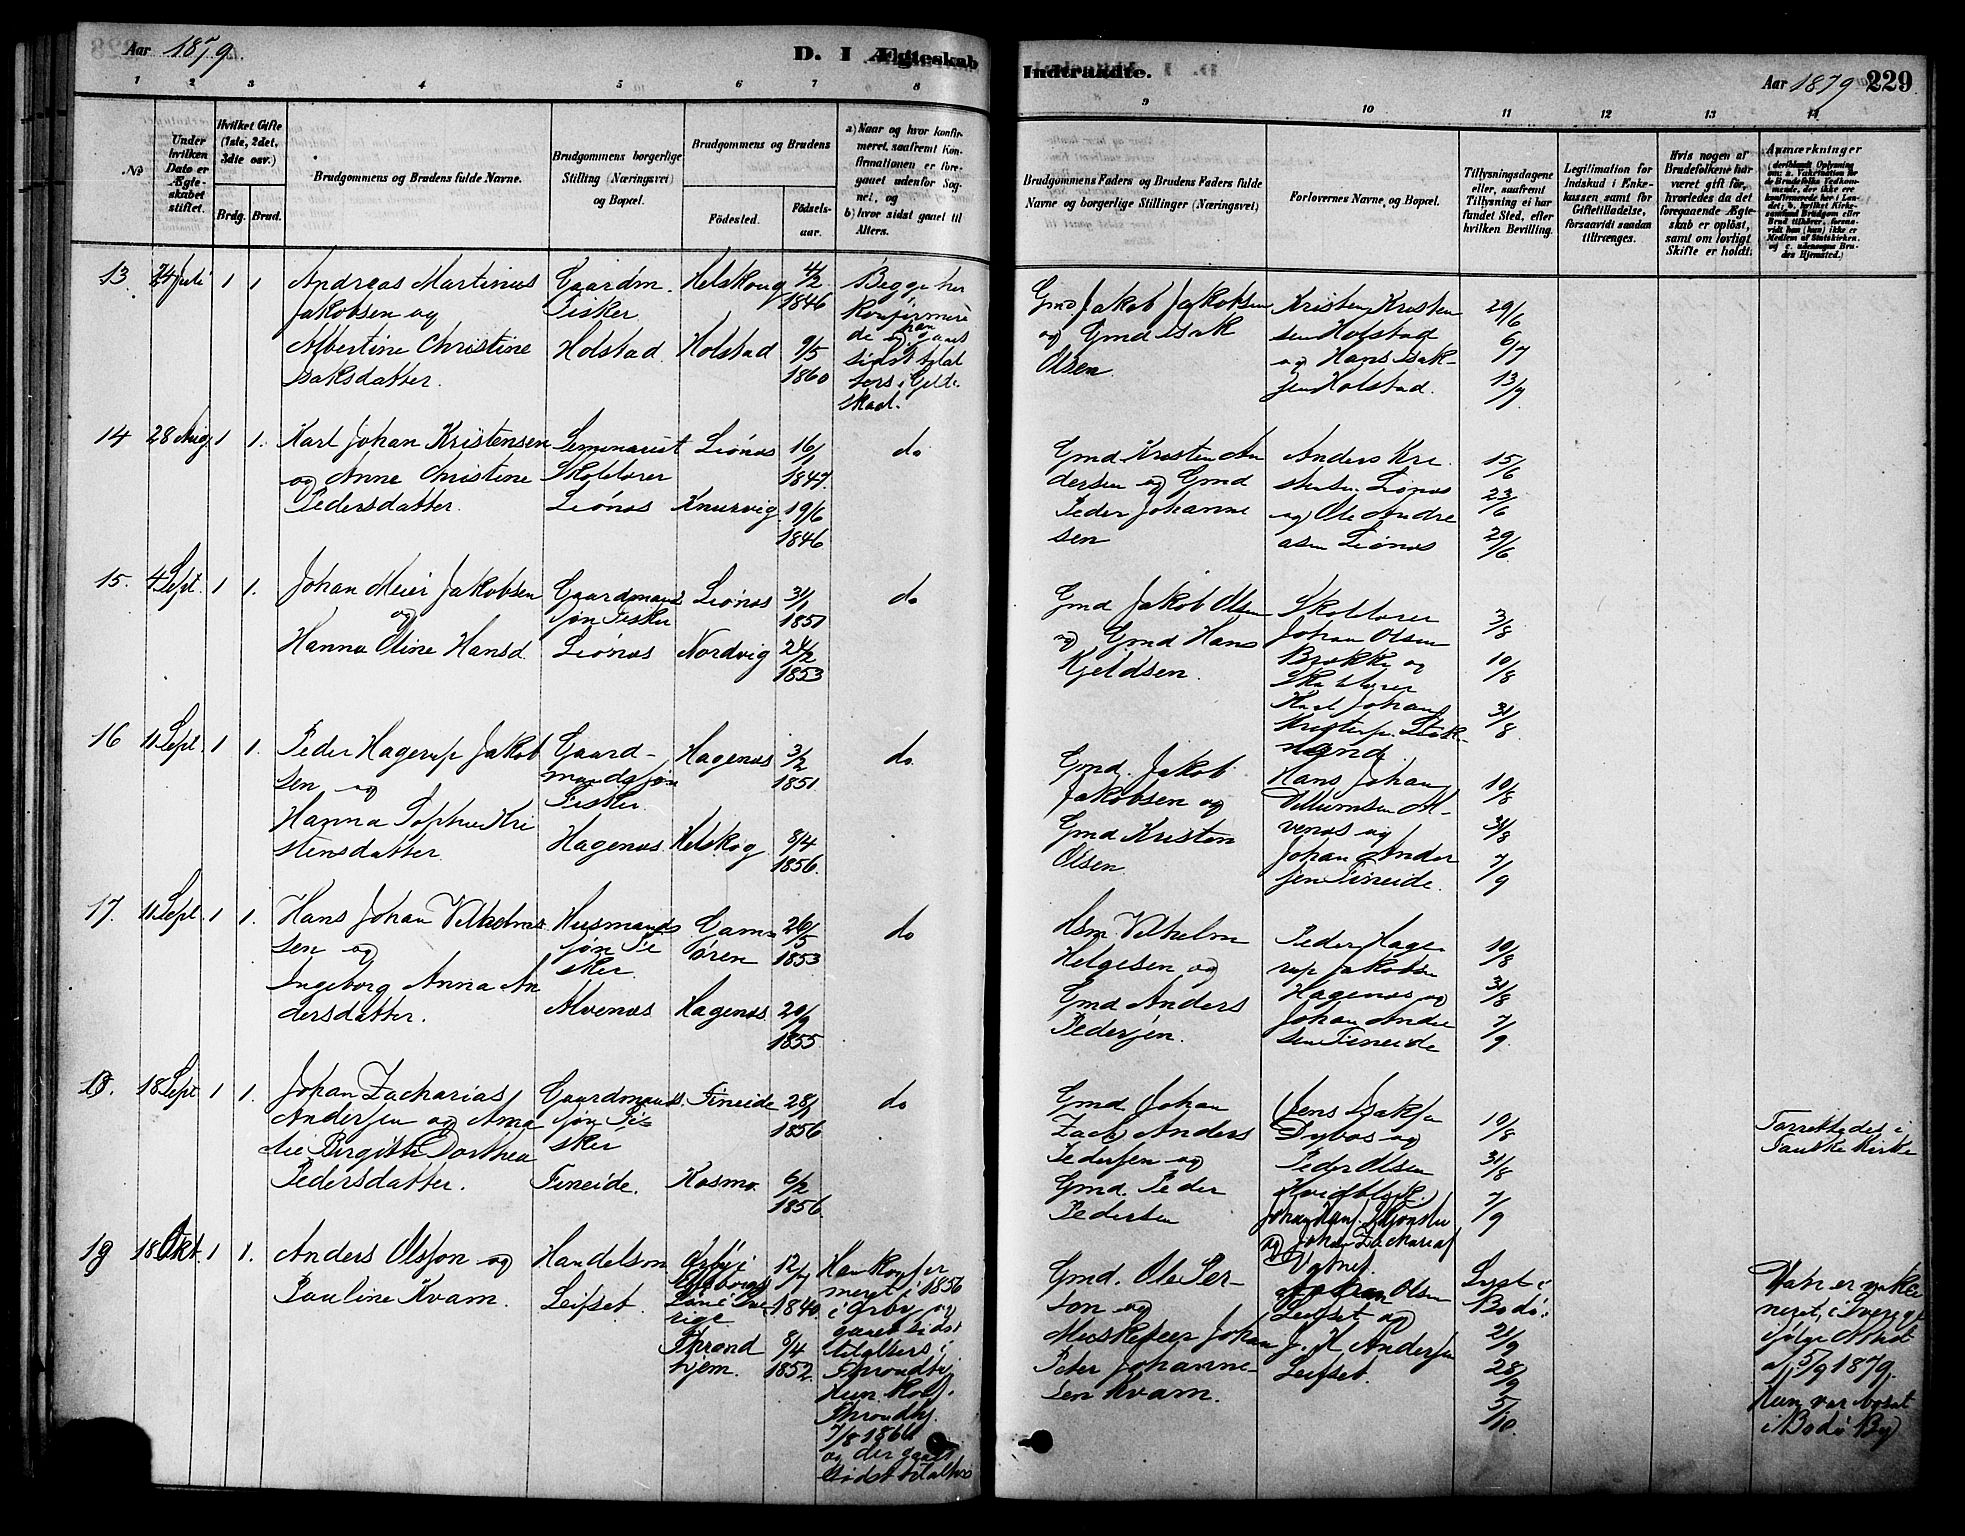 Aar 1879.
D. I Ægteskab
Indtraadte.
Aar 1879
229
1 2 3 4 5 6 7 8
9 10 11 12 13 14
No
Under hvilken Dato er Ægteskabet stiftet.
Hvilket Gifte (1ste, 2det, 3die osv.)
Brdg. Brud.
Brudgommens og Brudens fulde Navne.
Brudgommens borgerlige Stilling (Næringsvei) og Bopæl.
Brudgommens og Brudens
Fødested.
Fødselsaar.
a) Naar og hvor konfirmeret, saafremt Konfirmationen er foregaaet udenfor Sognet, og
b) hvor sidst gaaet til Alters.
Brudgommens Faders og Brudens Faders fulde Navne og borgerlige Stillinger (Næringsvei)
Forlovernes Navne, og Bopæl.
Tillysningsdagene eller, saafremt Tillysning ei har fundet Sted, efter hvilken Bevilling.
Legitimation for Indskud i Enkekassen samt for Giftetilladelse, forsaavidt saadan tiltrænges.
Hvis nogen af Brudefolkene har været gift før, hvorledes da det foregaaende Ægteskab er opløst, samt om lovligt Skifte er holdt.
Anmærkninger
13. 24 Juli 1 1
Andreas Martinus
Jakobsen og
Albertine Christine
Isaksdatter.
Gaardm.
Fisker
Holstad
Helskoug
Holstad
4/2
1846
9/5
1860
Begge her
konfirmere
de og han gaaet
sidst til Al
ters i Gilde
skaal.
Gmd Jakob Jakobsen
og Gmd Isak
Olsen
Kristen Kristen
sen Holstad
og Hans Isak-
sen Holstad.
29/6
6/7
13/7
14 28 Aug. 1 1.
Karl Johan Kristensen
og Anne Christine
Pedersdatter.
Seminarist
Skolelærer
Leiknes
Knurvig
16/1
1847.
19/6
1846
do
Gmd Kristen An
dersen og Gmd
Peder Johanne
sen
Anders Kri
stensen
og Ole Andre
asen
15/6
23/6
29/6
15. 4 Sept. 1 1.
Johan Meier Jakobsen
og
Hanna Oline Hansd.
Gaardmand
søn Fisker
Nordvig
31/1
1851
24/2
1853
do
Gmd Jakob Olsen
og Gmd Hans
Kjeldsen.
Skolelærer
Johan Olsen
Brække og
Skolelærer
Karl Johan
3/8
10/8
31/8
16 11 Sept. 1 1.
Peder Hagerup Jakob
sen og
Hanna Sophie Kri
stensdatter
Gaard-
mandssøn
Fisker.
Hagenæs
Hagenæs
Helskog
3/2
1851
8/4
1856.
do.
Gmd. Jakob
Jakobsen og
Gmd Kristen
Olsen
Hans Johan
Vilhelmsen Al-
venæs og
Johan Ander
sen Fineide.
10/8
31/8
7/9
17. 11 Sept. 1 1.
Hans Johan Vilhelm
sen og
Ingeborg Anna An
dersdatter.
Husmands
søn Fi
sker
Alvenæs
Hagenæs
26/5
1853
20/9
1855
do
Hsm. Vilhelm
Helgesen og
Gmd Anders
Pedersen.
Peder Hage
rup Jakobsen
Hagenæs og
Johan Ander
sen Fineide
10/8
31/8
7/9
18. 18 Sept 1 1.
Johan Zacharias
Andersen og Ama
lie Birgitte Dorthea
Pedersdatter.
Gaardmands
søn Fi-
sker
Fineide.
Fineide
Kosmo
28/
1856
6/2
1856.
do
Gmd. Johan
Zach. Anders
Pedersen og
Gmd. Peder
Pedersen
Jens Isaksen
Dybos og
Peder Olsen
10/8
31/8
7/9
Forrettedes i
Fauske Kirke
19 18 Okt. 1 1.
Anders Olsson og
Pauline Kvam.
Handelsm
Leifset.
Thrond
hjem.
12/
1840.
8/4
1852.
Han konfir
meret i 1856
i Ørby og
gaaet sidst
til Alters i
Throndhj.
Hun Konf.
Throndhj.
7/8 1866
og der gaaet
sidst til Alters
Gmd. Ole Per-
son og
Musketeer Johan
Peter Johanne-
sen Kvam.
Johan Olsen
Leifset og
J. H. Andersen
Leifset.
Lyst i
Bodø:
21/9
28/9
5/10
Han er vakci
neret, i Sverige
ifølge Attest
af 5/9 1879.
Hun var bosat
i Bodø By